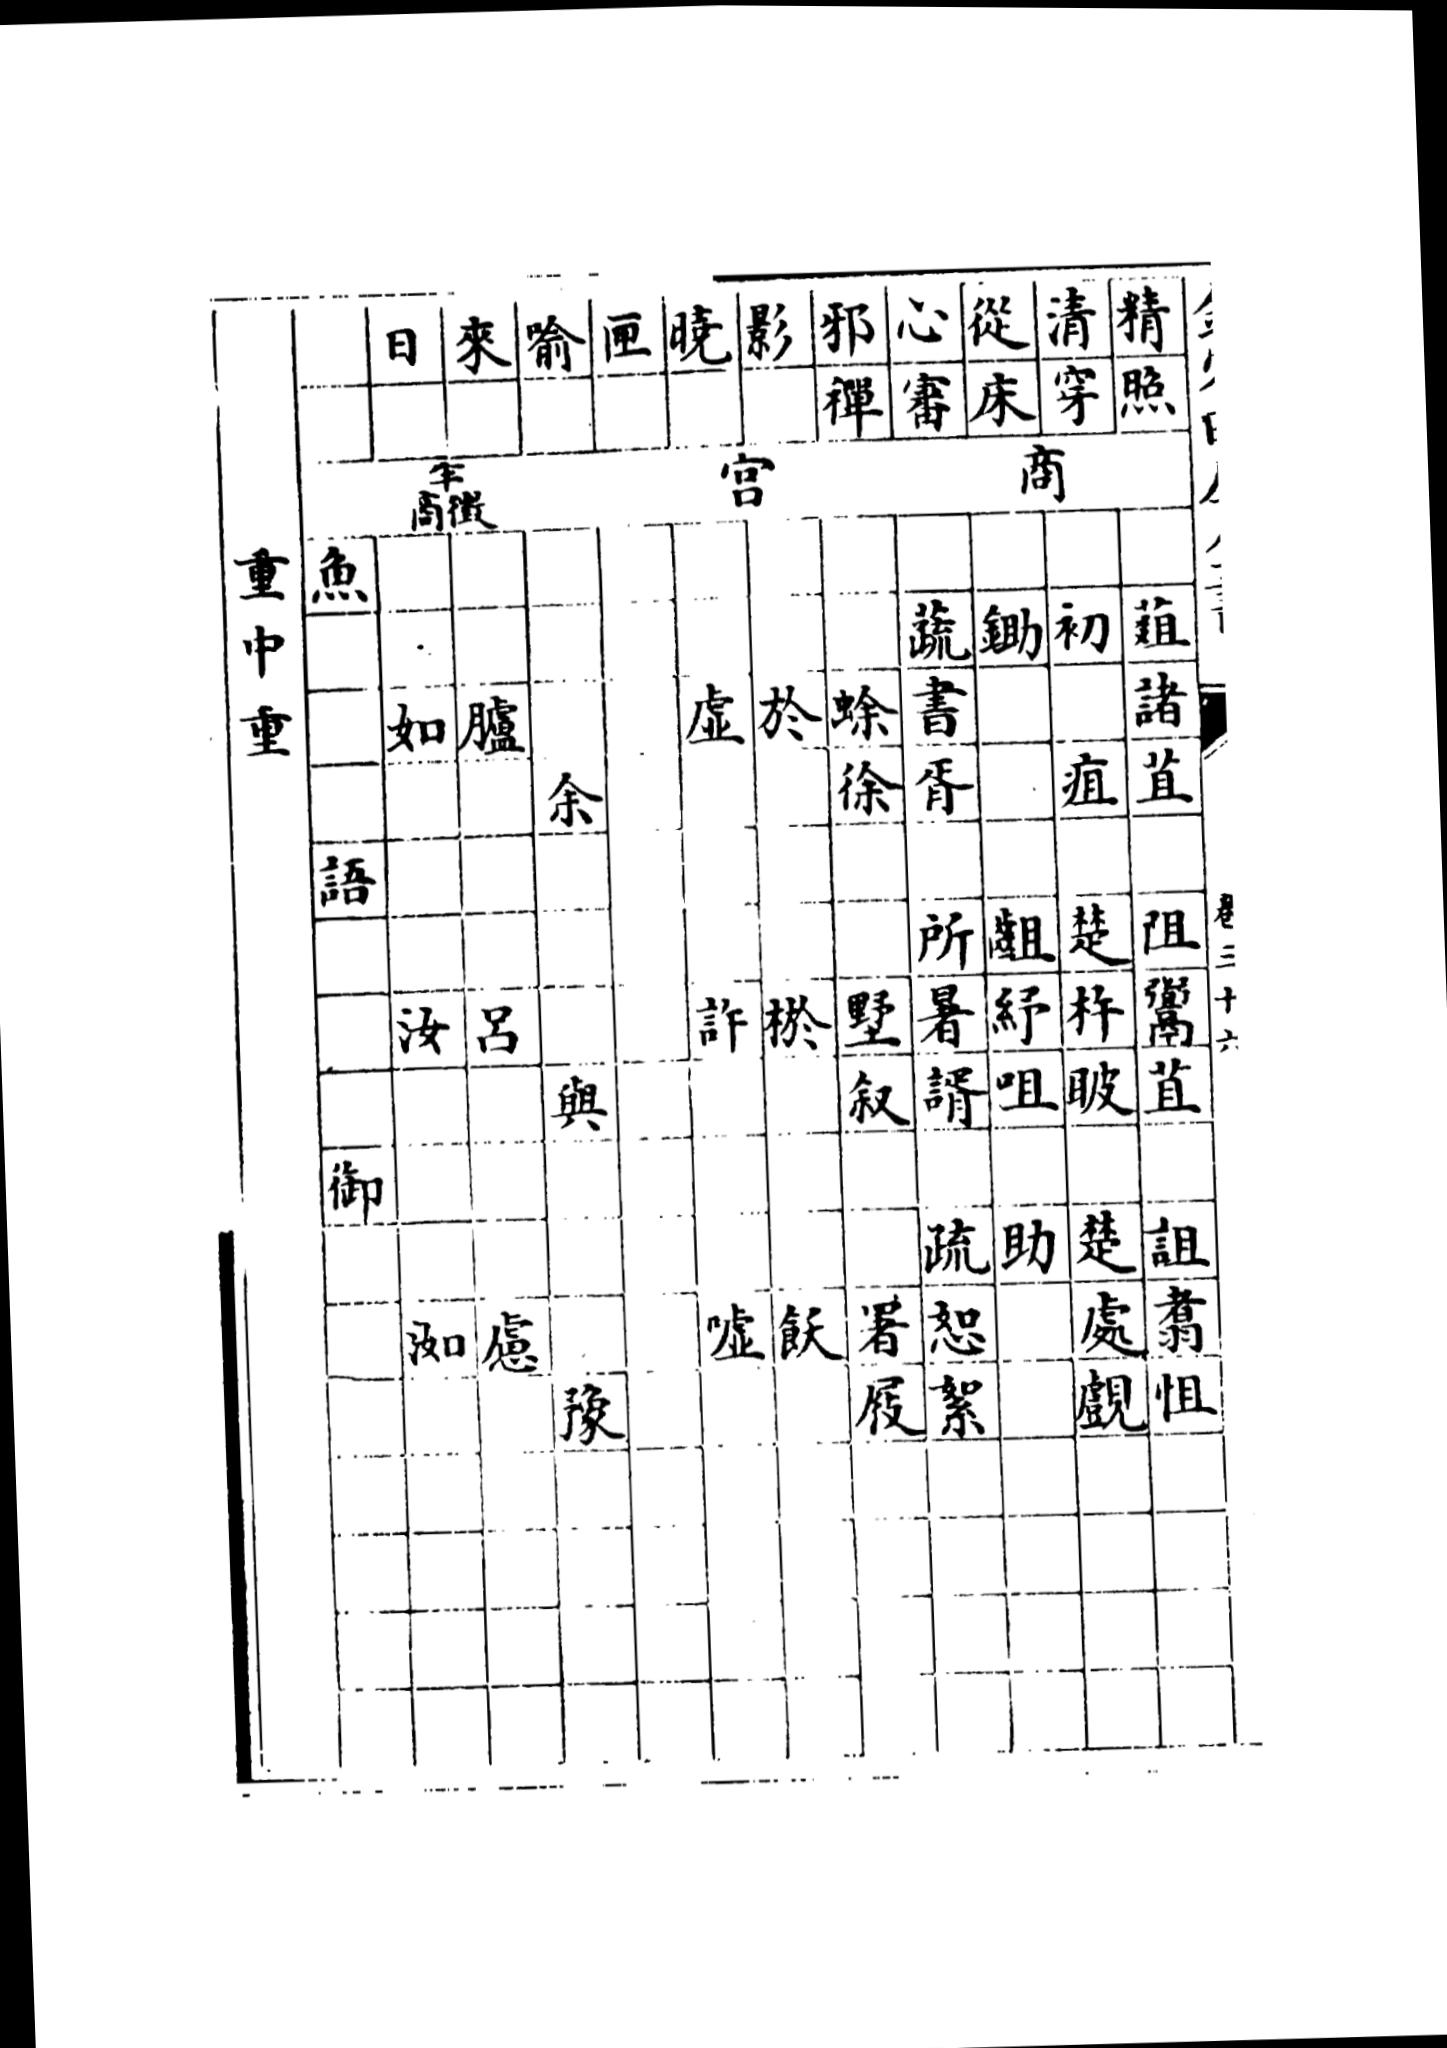 卷三十六
精照
清穿
從床
心審
邪禪
影
曉
匣
喻
來
日
商
宮
半徵商
菹諸苴
阻鬻苴
詛翥怚
初 疽
楚杵跛
楚處覷
鋤
齟紓咀
助
蔬書胥
所暑諝
疏恕絮
蜍徐
墅叙
署屐
於
棜
飫
虛
許
噓
余
與
豫
臚
呂
慮
如
汝
洳
魚
語
御
重中重